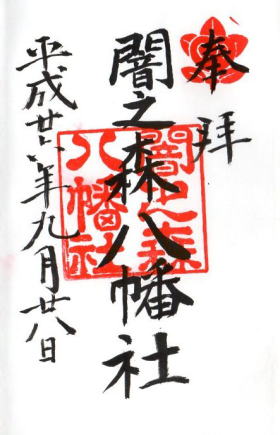 奉拝
闇之森八幡社
闇之森
八幡社
平成廿六年九月廿八日